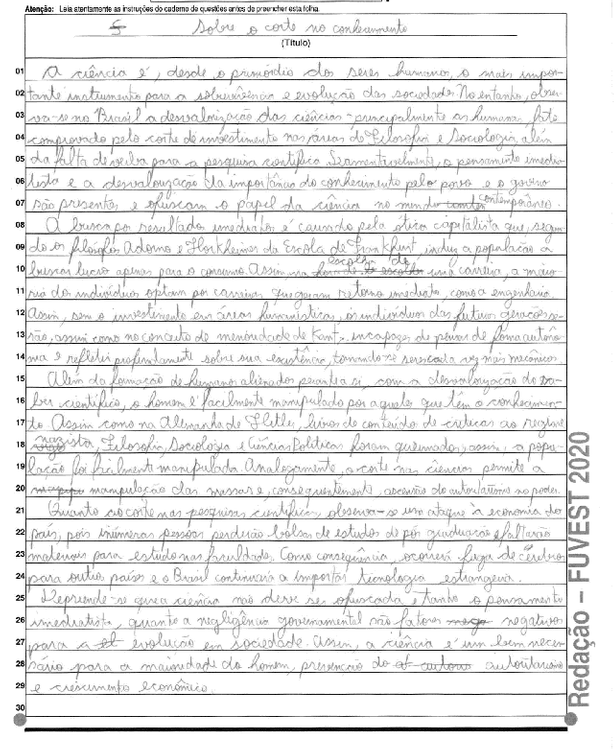 Atenção: Leia atentamente as instruções do caderno de questões antes de preencher esta folha.
Sobre o corte no conhecimento
(Título)
01 A ciência é, desde o primórdio dos seres humanos, o mais impor-
02 tante instrumento para a sobrevivência e evolução das sociedades. No entanto, obser-
03 va-se no Brasil a desvalorização das ciências - principalmente as humanas, fato
04 comprovado pelo corte de investimento nas áreas de Filosofia e Sociologia além
05 da falta de verba para a pesquisa científica. Lamentavelmente, o pensamento imedia-
06 tista e a desvalorização da importância do conhecimento pelo povo e o governo
07 são presentes e ofuscam o papel da ciência no mundo contemporâneo.
08 A busca por resultados imediatos é causado pela ótica capitalista que, segun-
09 do os filósofos Adorno e Horkheimer da Escola de Frankfurt, induz a população a
10 buscar lucro apenas para o consumo. Assim na escolha de uma carreira, a maio-
11 ria do indivíduos optam por carreiras que geram retorno imediato, como a engenharia.
12 Assim, sem o investimento em áreas humanísticas, os indivíduos das futuras gerações se-
13 rão, assim como no conceito de menoridade de Kant, incapazes de pensar de forma autôno-
14 ma e refletir profundamente sobre sua existência, tornando-se seres cada vez mais mecânicos.
15 Além da formação de humanos alienados perante a si, com a desvalorização do sa-
16 ber científico, o homem é facilmente manipulado por aqueles que têm o conhecimen-
17 to. Assim como na Alemanha de Hitler, livros de conteúdo de críticas ao regime
18 nazista, Filosofia, Sociologia e Ciências Políticas foram queimados, assim, a popu-
19 lação foi facilmente manipulada. Analogamente, o corte nas ciências permite a
20 manipulação das massas e, consequentemente, ascensão do autoritarismo no poder.
21 Quanto ao corte nas pesquisas científicas observa-se um ataque à economia do
22 país, pois inúmeras pessoas perderão bolsas de estudos de pós graduação e faltarão
23 materiais para estudo nas faculdades. Como consequência, ocorrerá fuga de cérebros
24 para outros países e o Brasil continuará a importar tecnologia estrangeira.
25 Depreende-se que a ciência não deve ser ofuscada e tanto o pensamento
26 imediatista, quanto a negligência governamental são fatores negativos
27 para a evolução em sociedade. Assim, a ciência é um bem neces-
28 sário para a maioridade do homem, prevenção do autoritarismo
29 e crescimento econômico.
30
Redação – FUVEST 2020